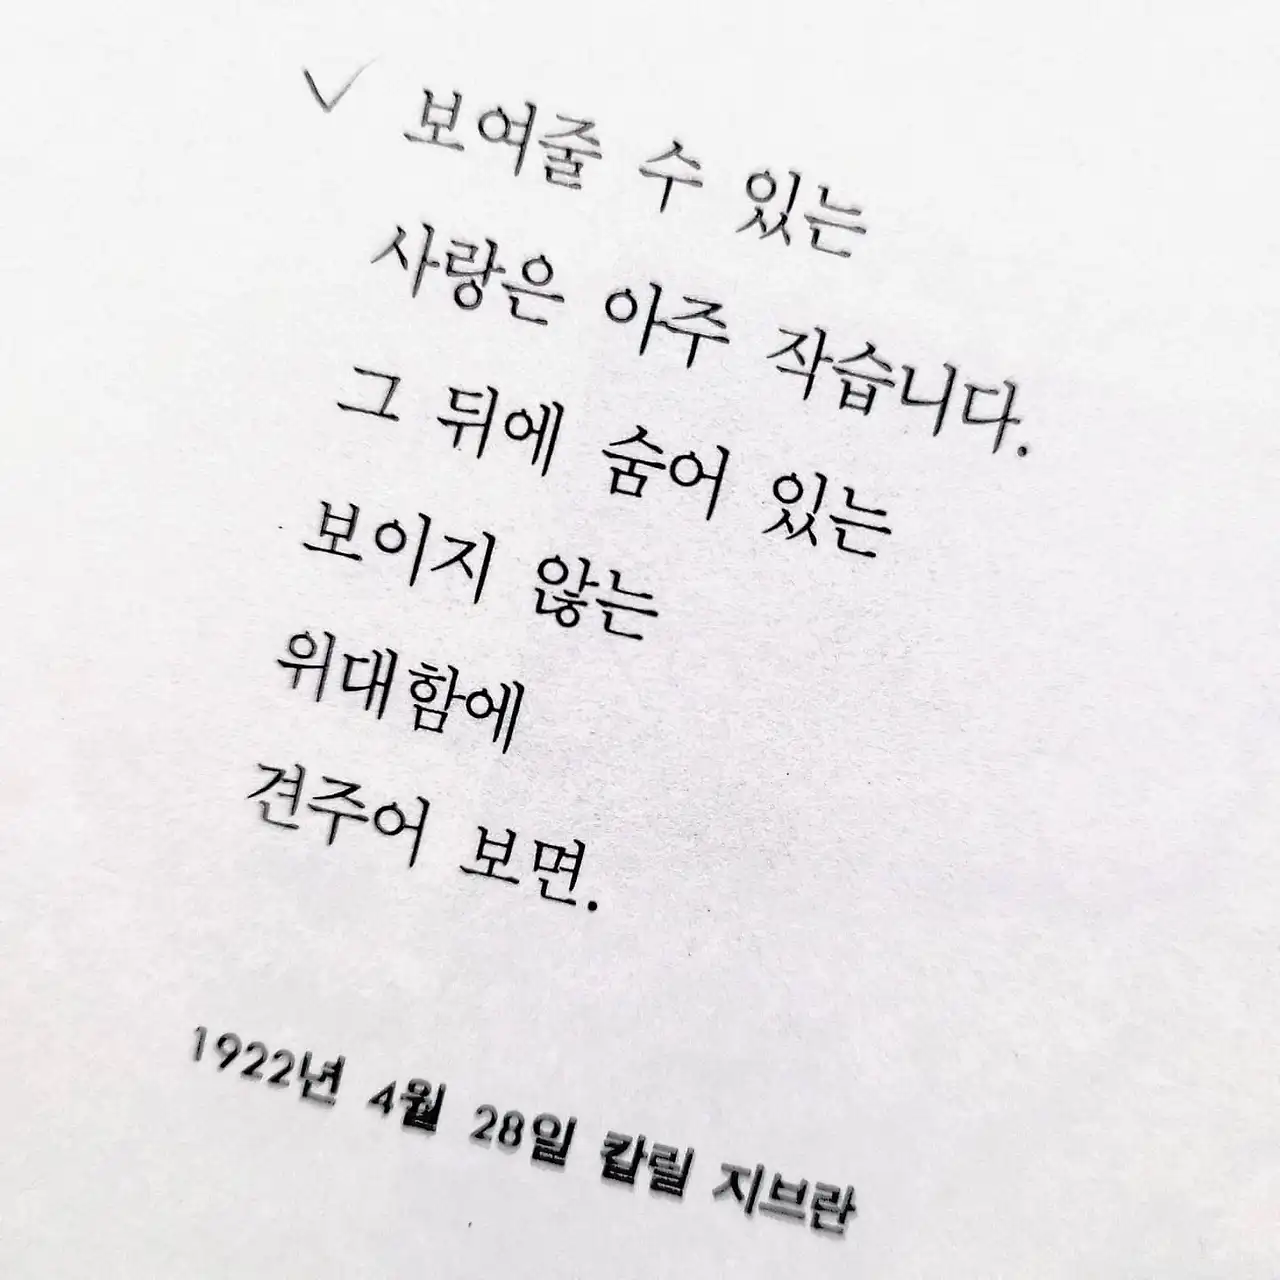 보여줄 수 있는
사랑은 아주 작습니다.
그 뒤에 숨어 있는
보이지 않는
위대함에
견주어 보면.
1922년 4월 28일 칼릴 지브란